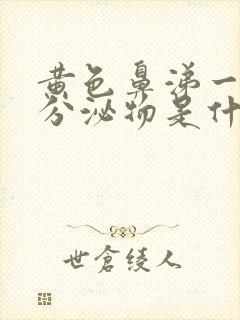 黄色鼻涕一
分泌物是什
世倉绫人